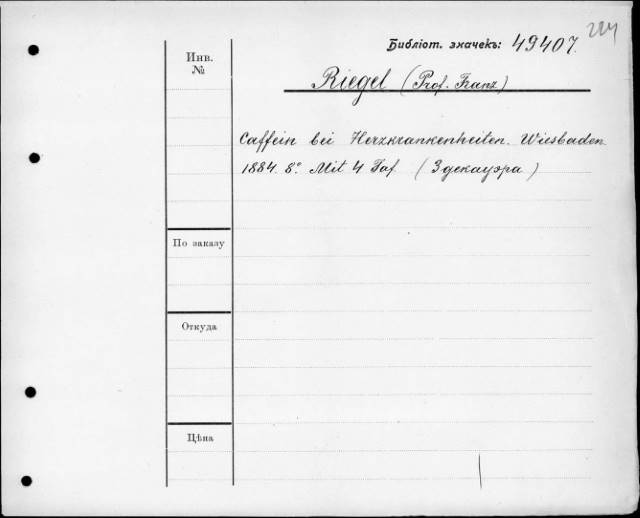 Библіот. значекъ: 49407.
Инв.
№
Riegel (Prof. Franz)
Caffein bei Herzkrankenheiten. Wiesbaden
1884. 8º. Mit 4 Taf (Здекауэра)
По заказу
Откуда
Цѣна